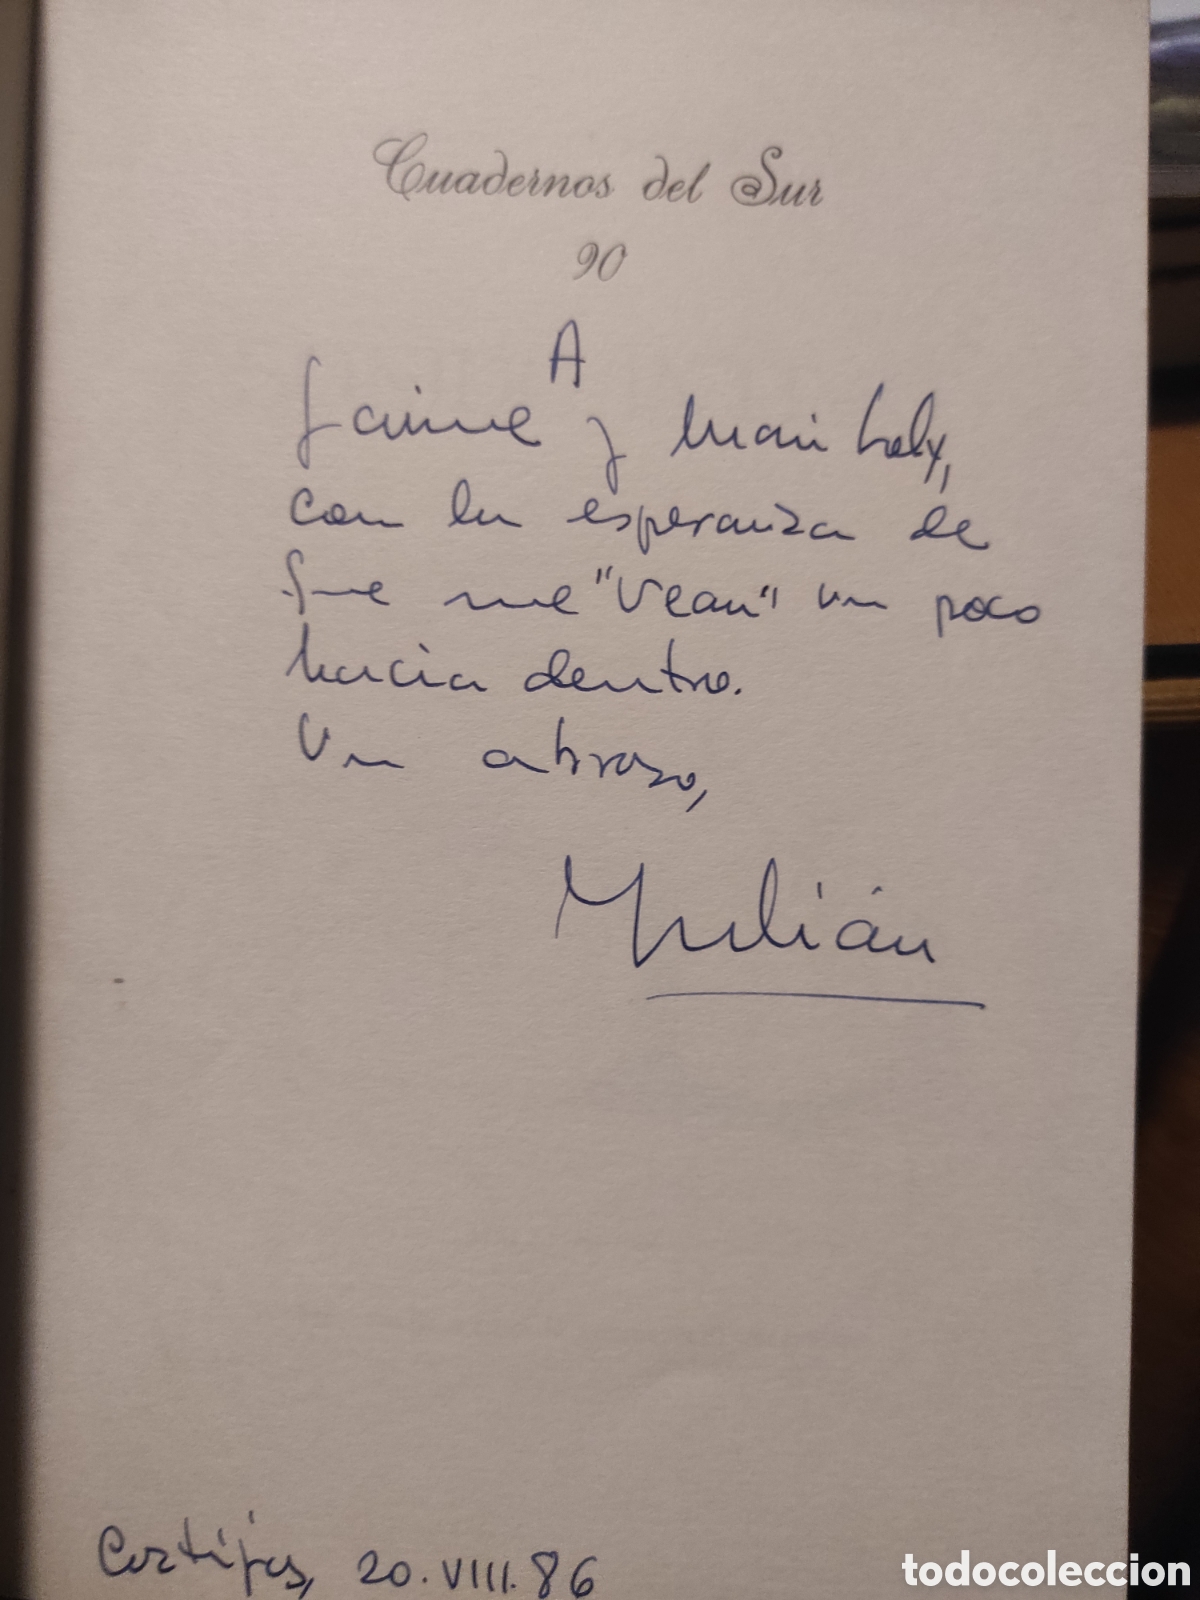 Cuadernos del Sur
90
A
Jaime y Mari Loly,
con la esperanza de
que me "vean" un poco
hacia dentro.
Un abrazo,
Julián
Cortijos, 20.VIII.86
todocoleccion